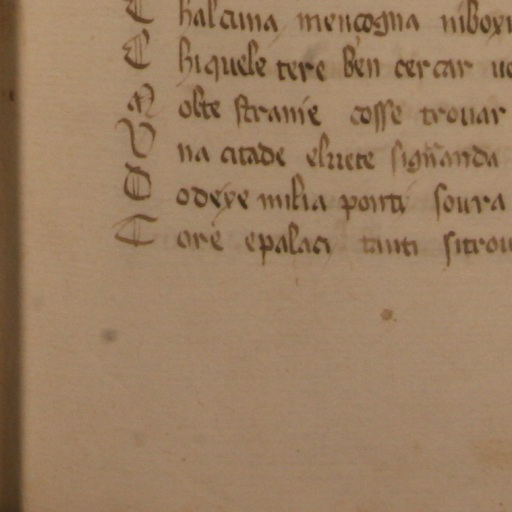 C halcuna mençogna niboxi
C hi quele tere ben cercar
M olte stranie cosse trouar
V na citade
D odexe milia ponti soura
T ore e palaci tanti si trou